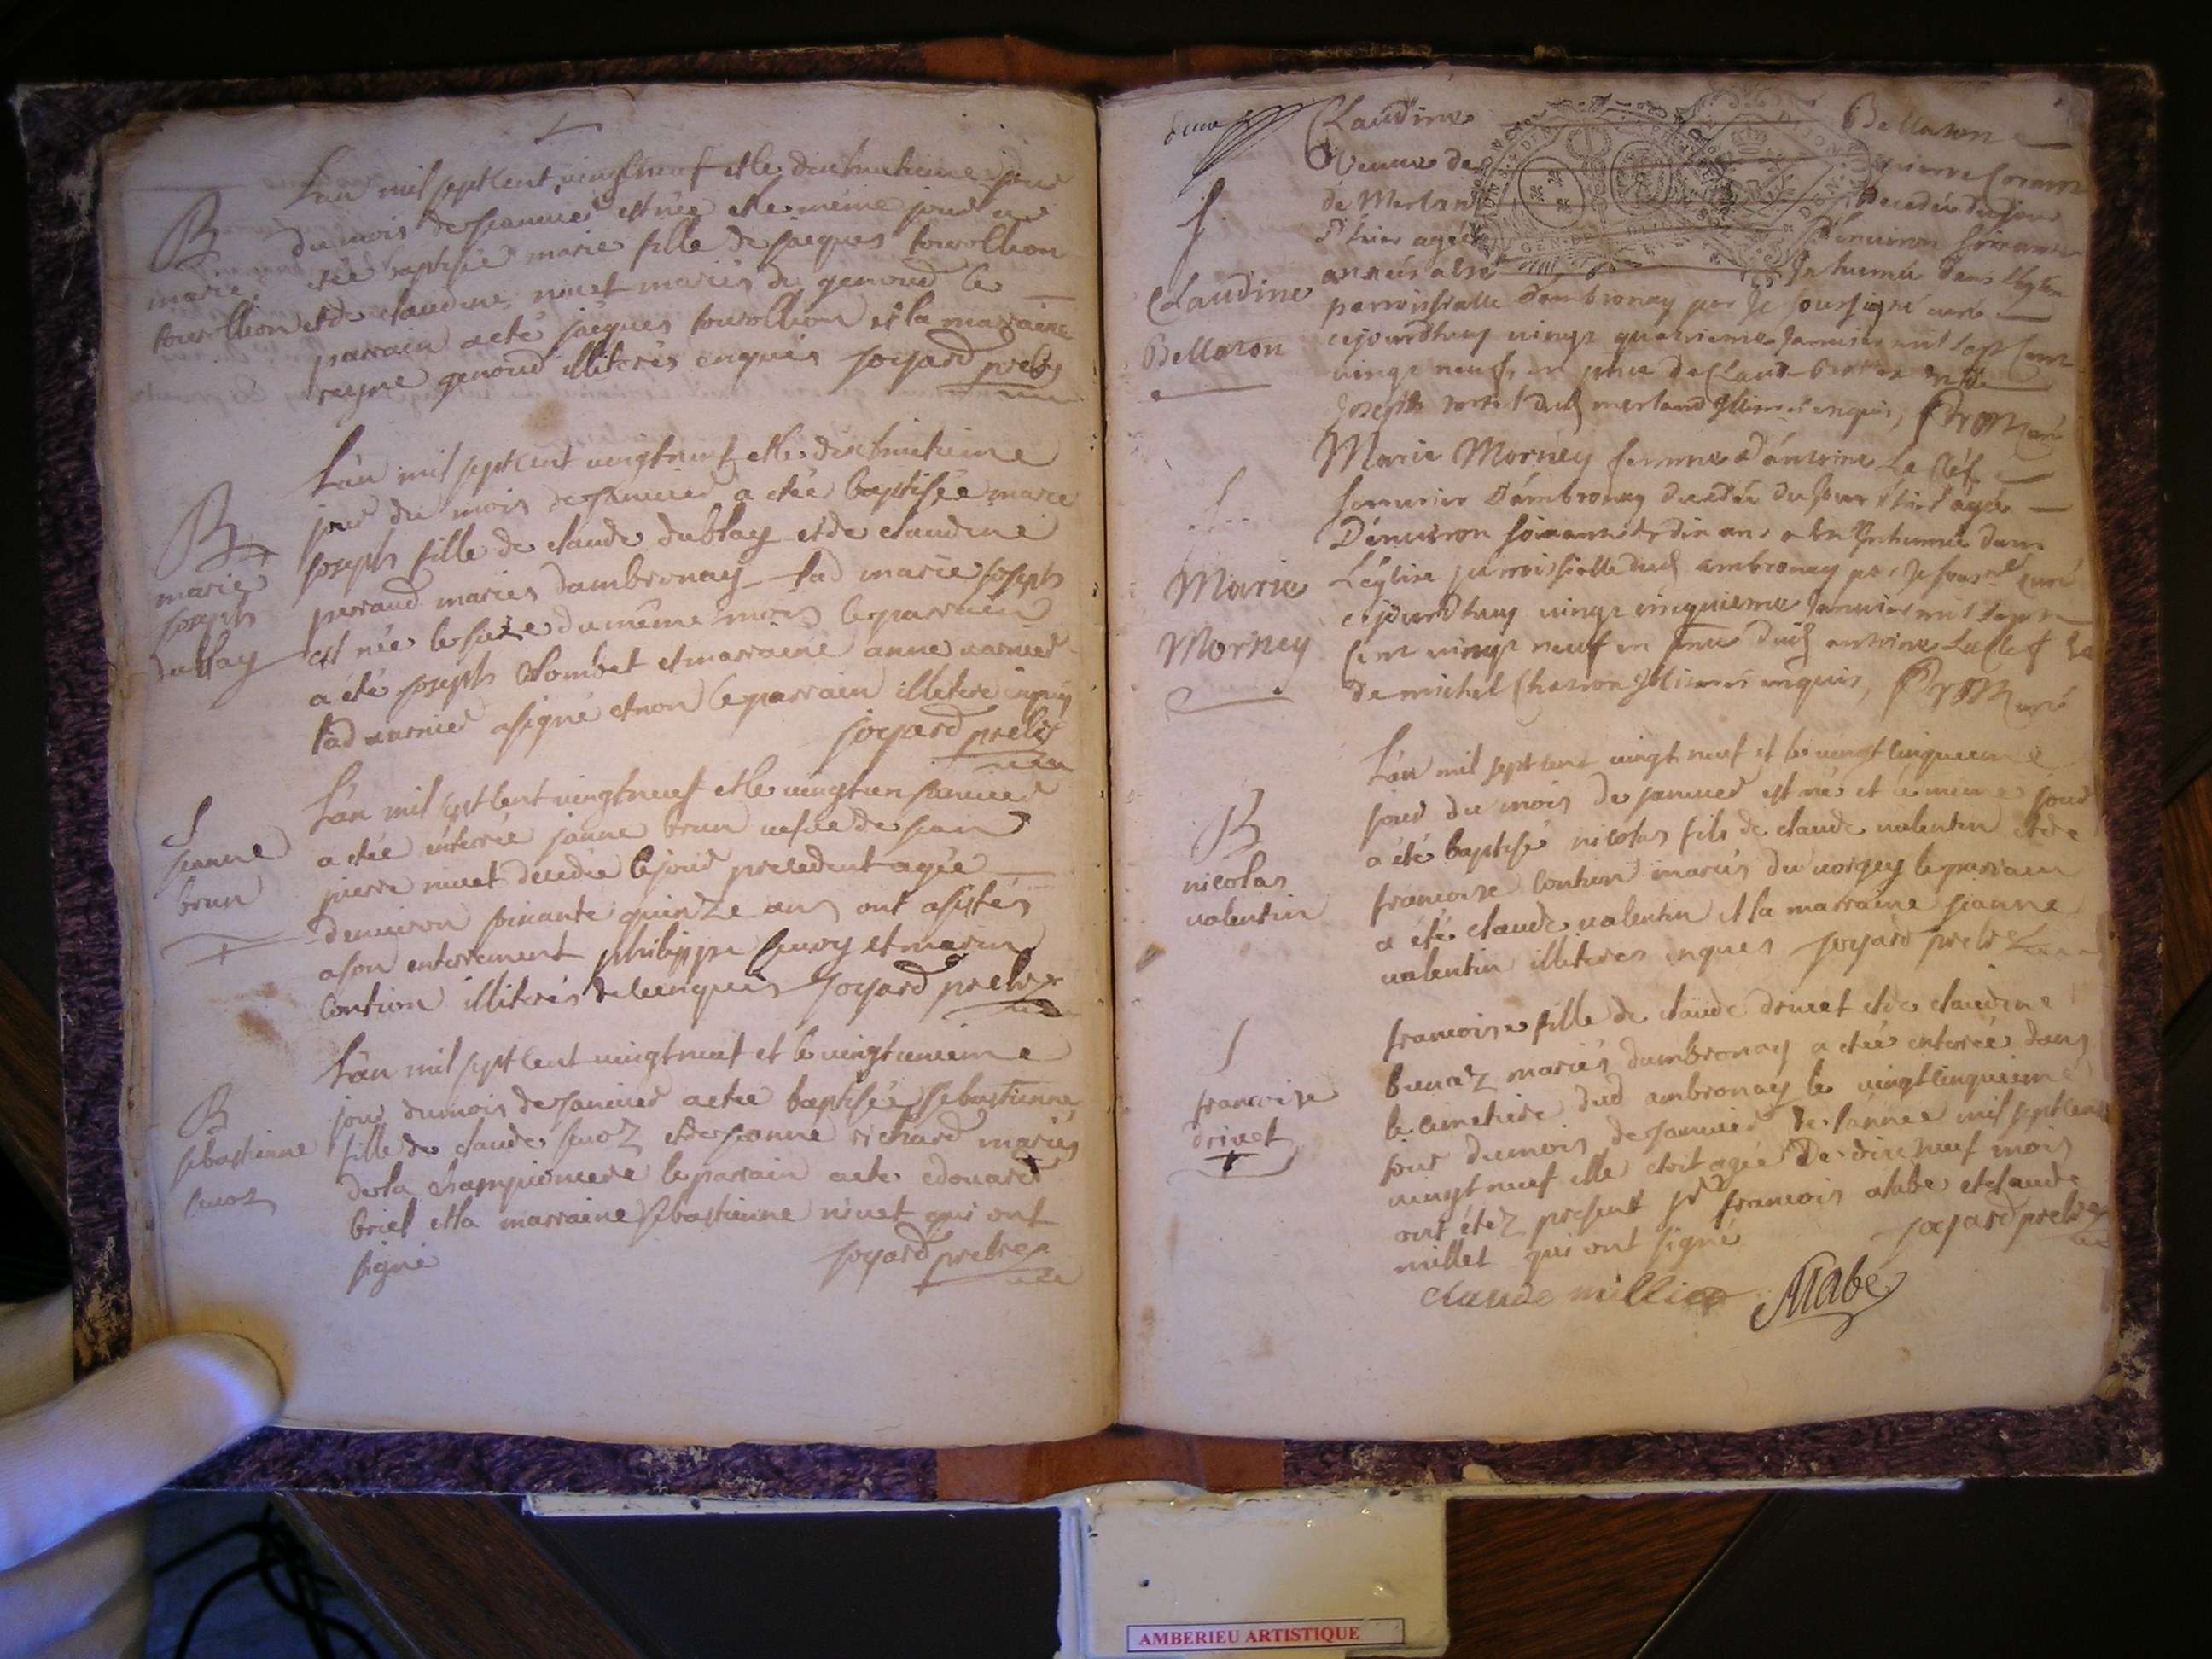 L'an mil sept cent vingt neuf et le dixhuitieme jour
du mois de janvier est née et le même jour a
B
étée baptisée marie fille de jacques tourollion
marie
tourollion
et de claudine nivet mariés du genoud le
parrain a eté jacques tourollion et la marraine
reyne genoud illiterés enquis joyard prebtre
L'an mil sept cent vingt neuf et le dixhuitieme
jour du mois de janvier a etée baptisée marie
B
marie
joseph
dublay
joseph fille de claude dublay et de claudine
perraud mariés dambronay lad marie joseph
est née le seize du même mois le parrain
a été joseph et marraine anne varnier
lad varnier a signé et non le parrain illitere enquis
joyard prebtre
L'an mil sept cent vingt neuf et le vingt un janvier
a étée enterrée janne brun vefve de
jeanne
brun
pierre nivet decedée le jour precedent agée
denviron soixante quinze ans ont assistés
a son enterrement philippe et
contion illiterés de ce enquis joyard prebtre
L'an mil sept cent vingt neuf et le vingt unieme
jour du mois de janvier a etée baptisée sebastienne
B
sebastienne
fille de claude et de jeanne richard mariés
de la championiere le parrain a eté edouard
briel et la marraine sebastienne nivet qui ont
signé joyard prebtre
Claudine Bellaton
Veuve de
de Merland Decedée du jour
d'hier agée D'environ soixante
années a esté Inhumée dans l'église
Claudine
Bellaton
parroissialle d'ambronay par Je soussigné curé
cejourdhuy vingt quatrieme Janvier mil sept cent
vingt neuf, en pnce de Claude
Joseph dud merland Illiterés enquis, curé
Marie Morney femme d'antoine La Clef
serrurier D'ambronay decedée du jour d'hier agée
D'environ soixante et dix ans a esté Inhumée dans
Marie
Morney
L'église parroissialle dud ambronay par Je sousné curé
cejourdhuy vingt cinquieme Janvier mil sept
cent vingt neuf en pnce dud antoine La Clef
de michel Charon Illiterés enquis, curé
L'an mil sept cent vingt neuf et le vingt cinquieme
jour du mois de janvier est né et le même jour
B
nicolas
valentin
a été baptisé nicolas fils de claude valentin et de
francoise contion mariés du vorgey le parrain
a été claude valentin et la marraine jeanne
valentin illiteres enquis joyard prebtre
francoise fille de claude drivet et de claudine
mariés dambronay a etée enterrée dans
francoise
drivet
le cimetiere dud ambronay le vingt cinquieme
jour du mois de janvier de l'année mil sept cent
vingt neuf elle etoit agée De dix neuf mois
ont étéz present sr francois alabe et claude
millet qui ont signé joyard prebtre
claude milliet Alabe
AMBERIEU ARTISTIQUE